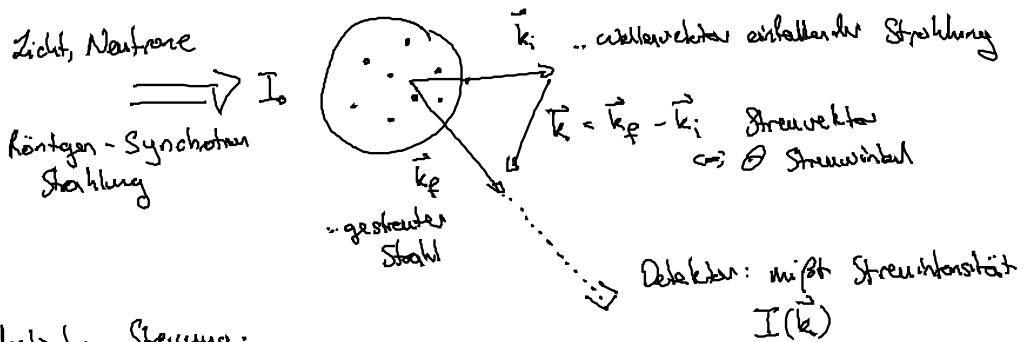 Licht, Neutrone
I₀
Röntgen - Synchotron
Strahlung
k⃗ᵢ ..wellenvektor einfallender Strahlung
k⃗ = k⃗_f - k⃗ᵢ Streuvektor
<=> θ Streuwinkel
k⃗_f
..gestreuter
Strahl
Detektor: mißt Streuintensität
I(k⃗)
Streuung: